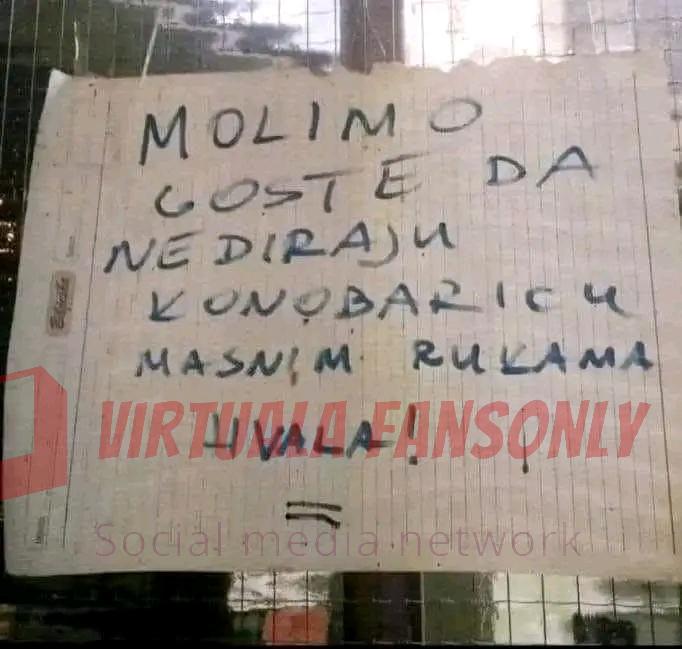 MOLIMO
GOSTE DA
NEDIRAJU
KONOBARICU
MASNIM RUKAMA
HVALA!
VIRTUALA FANSONLY
Social media network